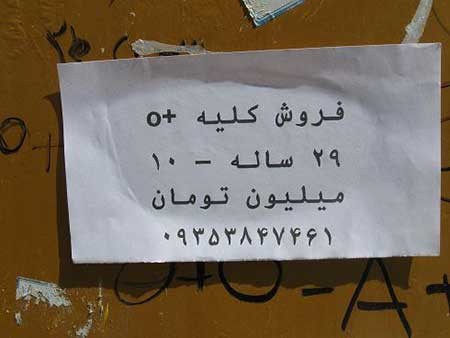 فروش کلیه o+
۲۹ ساله – ۱۰
میلیون تومان
۰۹۳۵۳۸۴۷۴۶۱
o+
o+O-A+